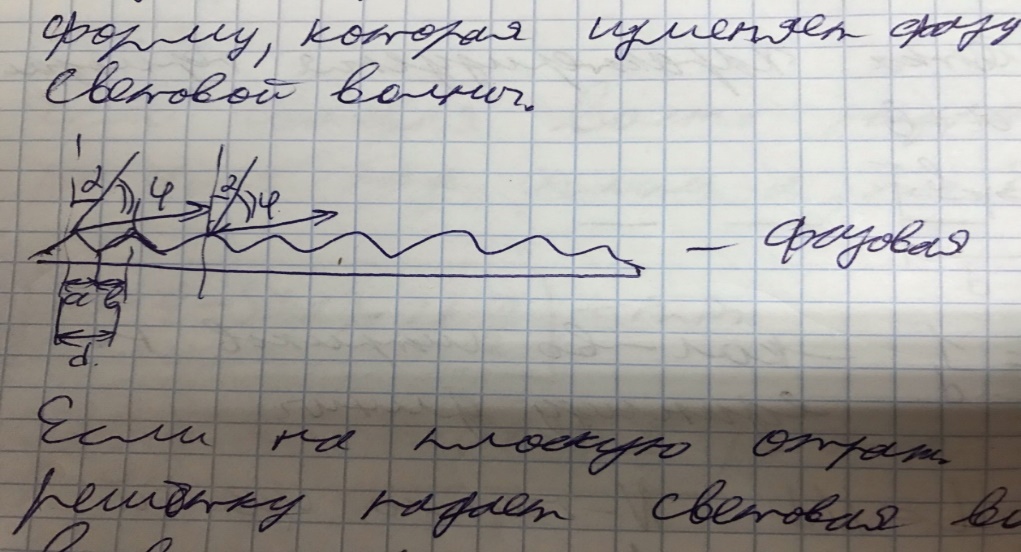 форму, которая изменяет фазу
световой волны.
α φ α φ
– фазовая
a b
d
Если на плоскую отраж.
решётку падает световая во